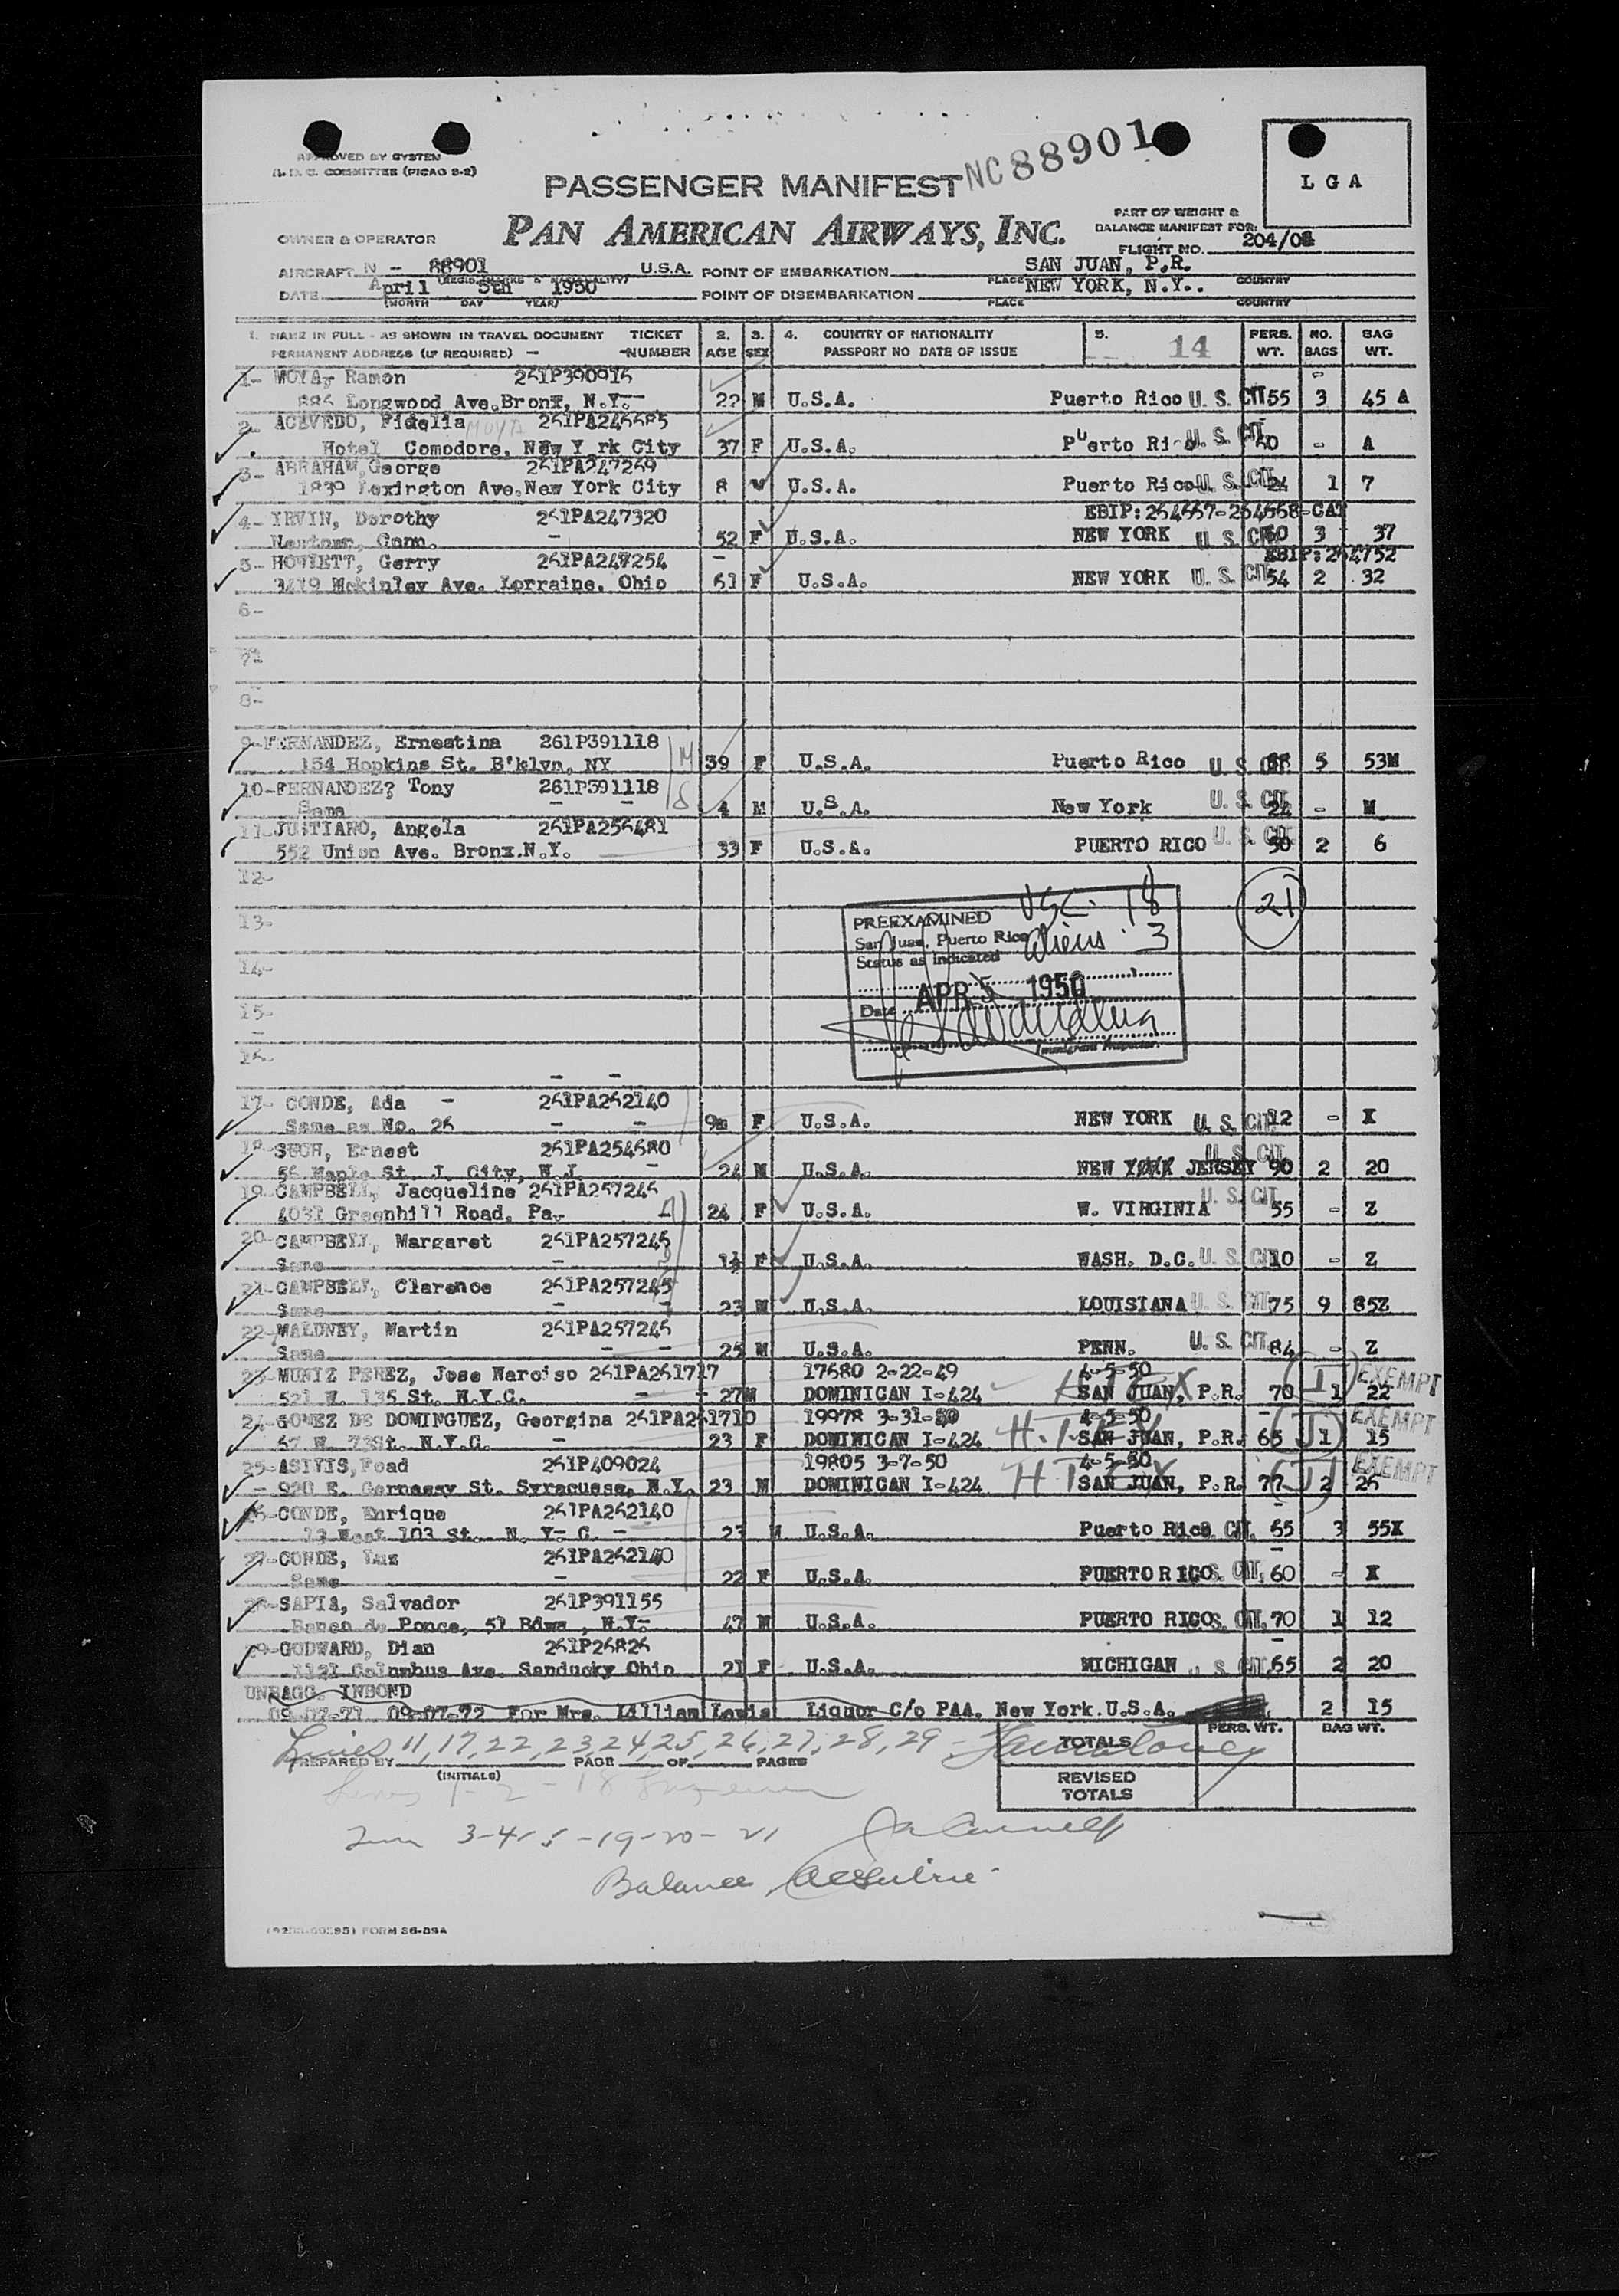 APPROVED BY SYSTEM
COMMITTEE (PICAO S-2)
PASSENGER MANIFEST
NC88901
LGA
PAN AMERICAN AIRWAYS, INC.
PART OF WEIGHT &
BALANCE MANIFEST FOR:
OWNER & OPERATOR
FLIGHT NO. 204/08
AIRCRAFT N - 88901 U.S.A. POINT OF EMBARKATION SAN JUAN, P.R.
PLACE COUNTRY
DATE April 5th 1950 POINT OF DISEMBARKATION NEW YORK, N.Y..
(MONTH DAY YEAR) PLACE COUNTRY
1. NAME IN FULL - AS SHOWN IN TRAVEL DOCUMENT TICKET 2. 3. 4. COUNTRY OF NATIONALITY 5. 14 PERS. NO. BAG
PERMANENT ADDRESS (IF REQUIRED) - -NUMBER AGE SEX PASSPORT NO DATE OF ISSUE WT. BAGS WT.
1- MOYA, Ramon 261P390916
886 Longwood Ave.Bronx, N.Y. 22 M U.S.A. Puerto Rico U.S. CIT 55 3 45 A
2- ACEVEDO, Fidelia MOYA 261PA246685
Hotel Comodore, New Y rk City 37 F U.S.A. Puerto Rico U.S. CIT. - A
3- ABRAHAM, George 261PA247269
1830 Lexington Ave.New York City 8 M U.S.A. Puerto Rico U.S. CIT. 24 1 7
4- IRVIN, Dorothy 261PA247320 EBIP:264667-264668-CAT
Conn. 52 F U.S.A. NEW YORK U.S. CIT. 60 3 37
5- HOWLETT, Gerry 261PA247254 EBIP:264752
3419 Mckinley Ave. Lorraine, Ohio 61 F U.S.A. NEW YORK U.S. CIT 54 2 32
6-
7-
8-
9-FERNANDEZ, Ernestina 261P391118
154 Hopkins St. B'klyn, NY M 39 F U.S.A. Puerto Rico U.S. CIT. 5 53M
10-FERNANDEZ? Tony 261P391118
Same - - S 4 M U.S.A. New York U.S. CIT. 24 - M
11-JUSTIANO, Angela 261PA256481
552 Union Ave. Bronx.N.Y. 33 F U.S.A. PUERTO RICO U.S. CIT. 50 2 6
12-
13-
14-
15-
16-
PREEXAMINED USC. 18
San Juan, Puerto Rico Aliens 3
Status as indicated
Date APR 5 1950
Immigrant Inspector.
21
17- CONDE, Ada - 261PA262140
Same as No. 26 - - 9m F U.S.A. NEW YORK U.S. CIT. 12 - X
18-SUCH, Ernest 261PA254680
56 Maple St. J. City, N.J. - 24 M U.S.A. NEW YORK JERSEY U.S. CIT. 90 2 20
19-CAMPBELL, Jacqueline 261PA257246
4031 Greenhill Road, Pa. 24 F U.S.A. W. VIRGINIA U.S. CIT. 55 - Z
20-CAMPBELL, Margaret 261PA257245
Same - 1½ F U.S.A. WASH. D.C. U.S. CIT. 10 - Z
21-CAMPBELL, Clarence 261PA257245
Same - - 23 M U.S.A. LOUISIANA U.S. CIT. 75 9 85Z
22-MALONEY, Martin 261PA257246
Same - - 25 M U.S.A. PENN. U.S. CIT. 84 - Z
23-MUNIZ PEREZ, Jose Narciso 261PA261717 17680 2-22-49 4-5-50 (I) EXEMPT
521 W. 135 St. N.Y.C. - - 27M DOMINICAN I-424 SAN JUAN, P.R. 70 1 22
24-GOMEZ DE DOMINGUEZ, Georgina 261PA261710 19978 3-31-50 4-5-50 EXEMPT
67 W. 73St. N.Y.C. - 23 F DOMINICAN I-424 SAN JUAN, P.R. 65 (I) 1 15
25-ASIVIS, Foad 261P409024 19805 3-7-50 4-5-50 EXEMPT
- 920 E. St. Syracuse, N.Y. 23 M DOMINICAN I-424 SAN JUAN, P.R. 77 (I) 2 26
26-CONDE, Enrique 261PA262140
West 103 St. N. Y. C. - 23 M U.S.A. Puerto Rico CIT. 65 3 55X
27-CONDE, Luz 261PA262140
Same - 22 F U.S.A. PUERTO RICO S. CIT. 60 - X
28-SAPIA, Salvador 261P391155
Banco de Ponce, 51 Bdwa , N.Y. 47 M U.S.A. PUERTO RICO S. CIT. 70 1 12
29-GODWARD, Dian 261P26826
1121 Columbus Ave. Sanducky Ohio 21 F U.S.A. MICHIGAN U.S. CIT. 65 2 20
UNBAGG. INBOND
09-07-71 09-07-72 For Mrs. Lilliam Lewis Liquor C/o PAA. New York.U.S.A. 2 15
Lines 11,17,22,23,24,25,26,27,28,29 - TOTALS PERS. WT. BAG WT.
PREPARED BY PAGE OF PAGES
(INITIALS)
REVISED
TOTALS
Lines 1-2-18
3-4-5-19-20-21
Balance
FORM S6-39A